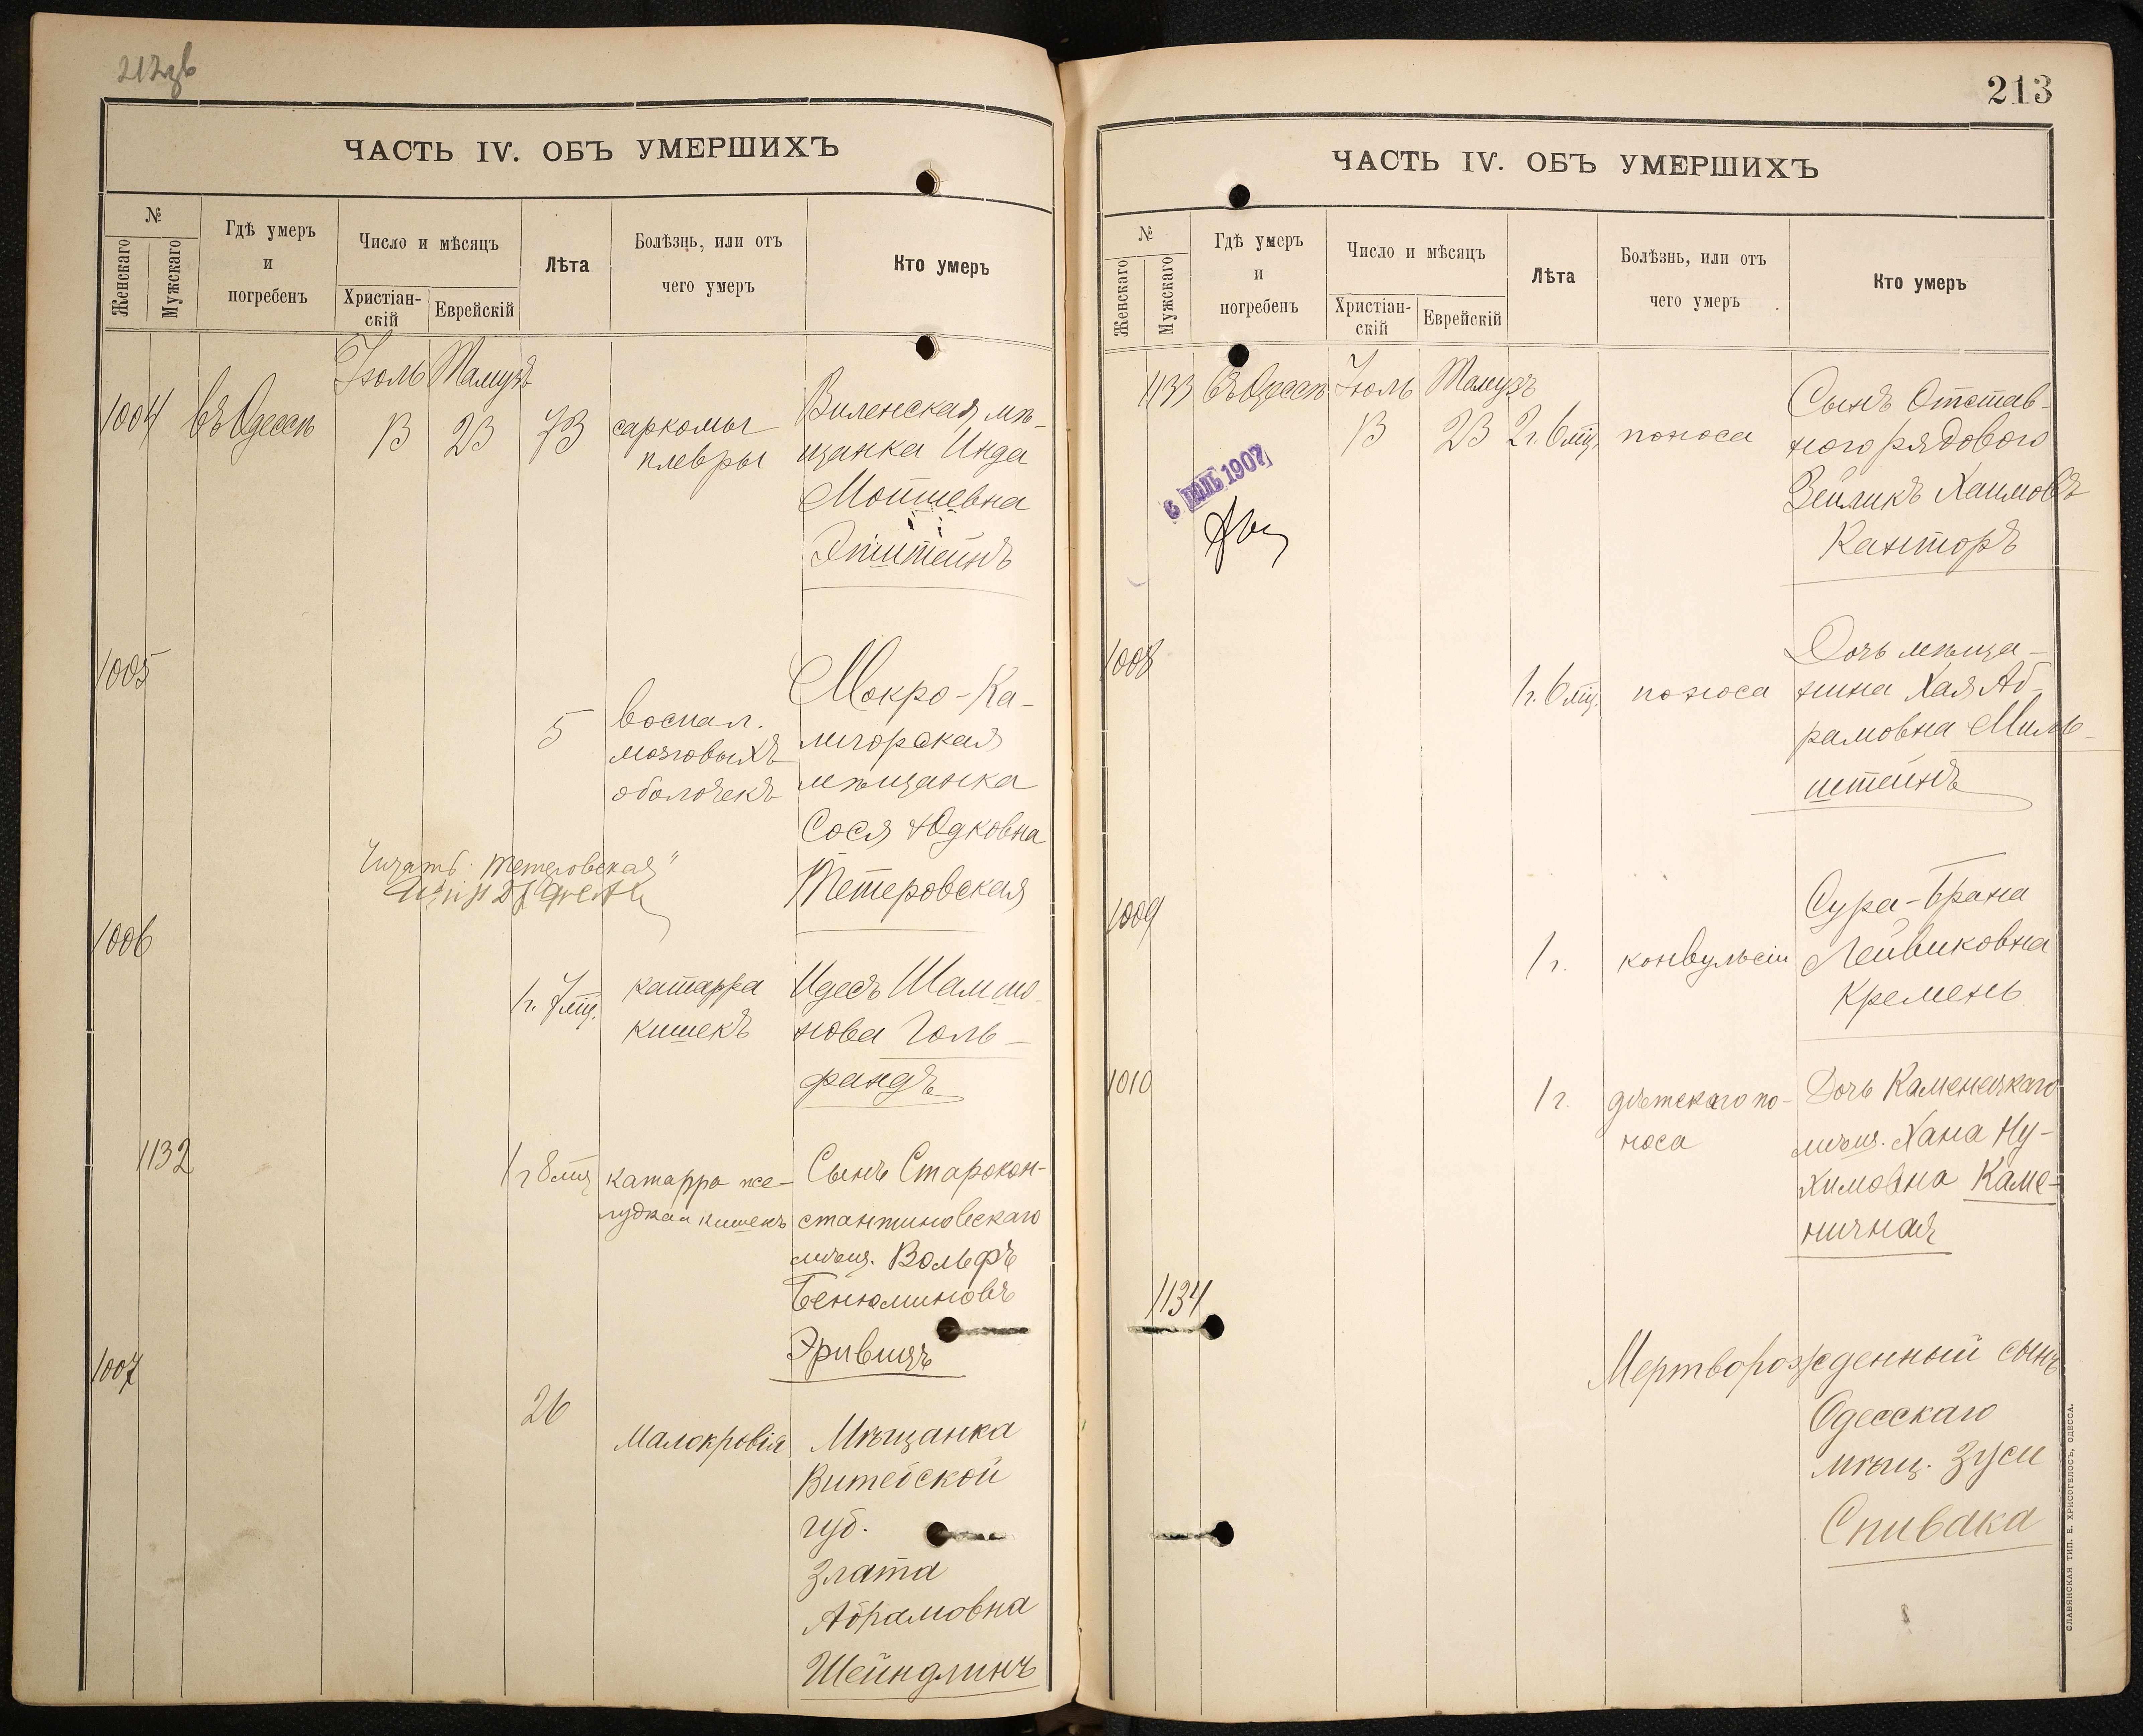 ЧАСТЬ IV. ОБЪ УМЕРШИХЪ
№
Женскаго
Мужскаго
Гдѣ умеръ
и
погребенъ
Число и мѣсяцъ
Христіан-
скій
Еврейскій
Лѣта
Болѣзнь, или отъ
чего умеръ
Кто умеръ
Іюль Тамузъ
1004 въ Одессѣ 13 23 73
саркомы
плевры
Виленская мѣ-
щанка Инда
Мотшевна
Эпштейнъ
1005
5
воспал.
мозговыхъ
оболочекъ
Мокро-Ка-
лигорская
мѣщанка
Сося Юдковна
Тетеровская
Читать: "Тетеровская"
1006
1 г. 7 мц.
катарра
кишекъ
Идесъ Шамшо-
новаГоль-
фандъ
1132
1 г 8 мц
катарра же-
лудка и кишекъ
Сынъ Старокон-
стантиновскаго
мѣщ. Вольфъ
Бенюминовъ
1007
26
Малокровія
Мѣщанка
Витебской
губ.
Злата
Абрамовна
Шейндлинъ
213
ЧАСТЬ IV. ОБЪ УМЕРШИХЪ
№
Женскаго
Мужскаго
Гдѣ умеръ
и
погребенъ
Число и мѣсяцъ
Христіан-
скій
Еврейскій
Лѣта
Болѣзнь, или отъ
чего умеръ
Кто умеръ
1133 въ Одессѣ Іюль Тамузъ
13 23 2 г. 6 мц. поноса
Сынъ Отстав-
ного рядового
Зейликъ Хаимовъ
Канторъ
6 ІЮЛЬ 1907
1008
1 г. 6 мц. поноса
Дочь мѣща-
нина Хая Аб-
рамовна Миль-
штейнъ
1009
1 г. конвульсіи
Сура-Брана
Лейвиковна
Кремень
1010
1 г.
дѣтскаго по-
носа
Дочь Каменецкаго
мѣщ. Хана Ну-
химовна Каме-
ничная
1134
Мертворожденный сынъ
Одесскаго
мѣщ. Зуси
Спивака
СЛАВЯНСКАЯ ТИП. Е. ХРИСОГЕЛОСЪ, ОДЕССА.